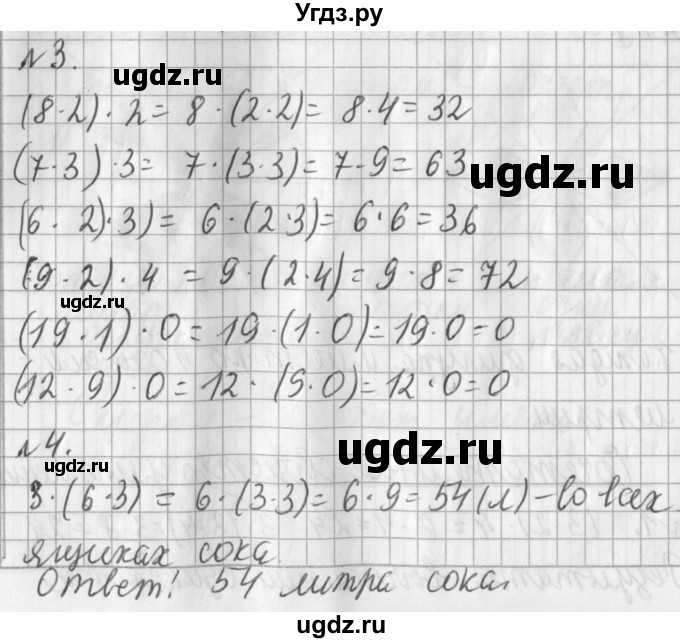 Угдз.ру
№3.
ugdz.ru
(8·2)·2= 8·(2·2)= 8·4=32
(7·3)·3= 7·(3·3)=7·9=63
ugdz.ru
(6·2)·3)= 6·(2·3)=6·6=36
(9·2)·4 =9·(2·4)=9·8=72
ugdz.ru
(19·1)·0=19·(1·0)=19·0=0
(12·9)·0=12·(9·0)=12·0=0
№4.
ugdz.ru
3·(6·3) = 6·(3·3)=6·9=54(л)-во всех
ящиках сока.
Ответ! 54 литра сока.
ugdz.ru
ugdz.ru